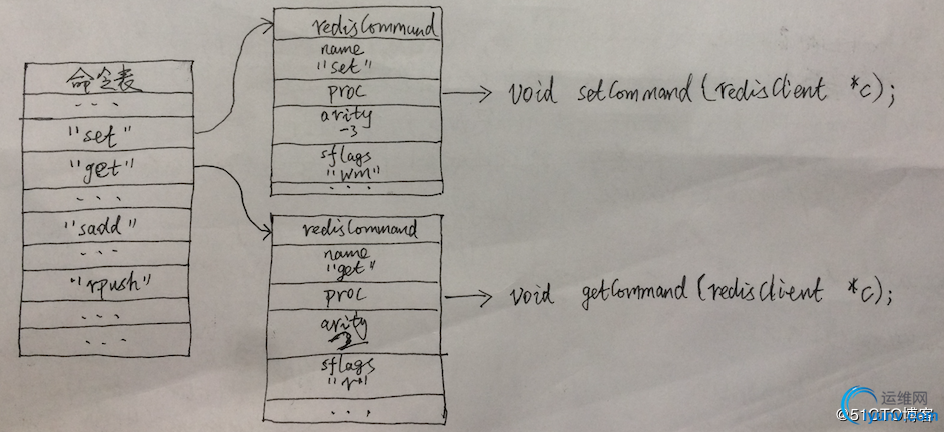 命令表
...
"set"
"get"
...
"sadd"
...
"rpush"
...
...
redisCommand
name
"set"
proc
arity
-3
sflags
"wm"
...
void setCommand(redisClient *c);
redisCommand
name
"get"
proc
arity
sflags
"r"
...
void getCommand(redisClient *c);
运维网
©51CTO博客